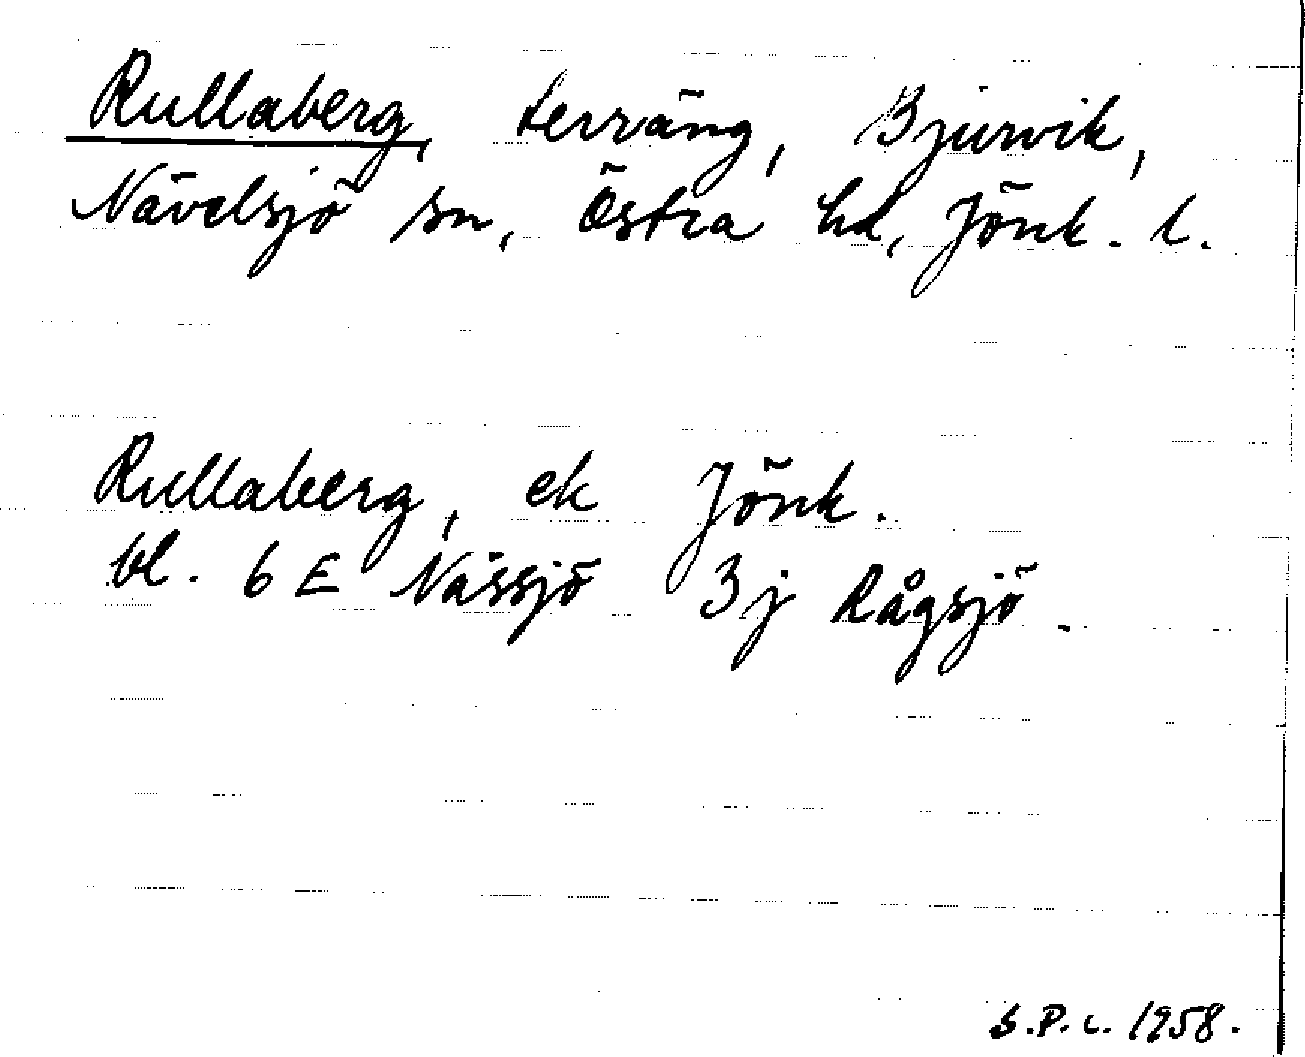 Rullaberg, terräng, Bjurvik,
Nävelsjö sn, Östra hd, Jönk. l.
Rullaberg, ek Jönk.
bl. 6 E Nässjö 3 j Rågsjö.
S.P.c. 1958.